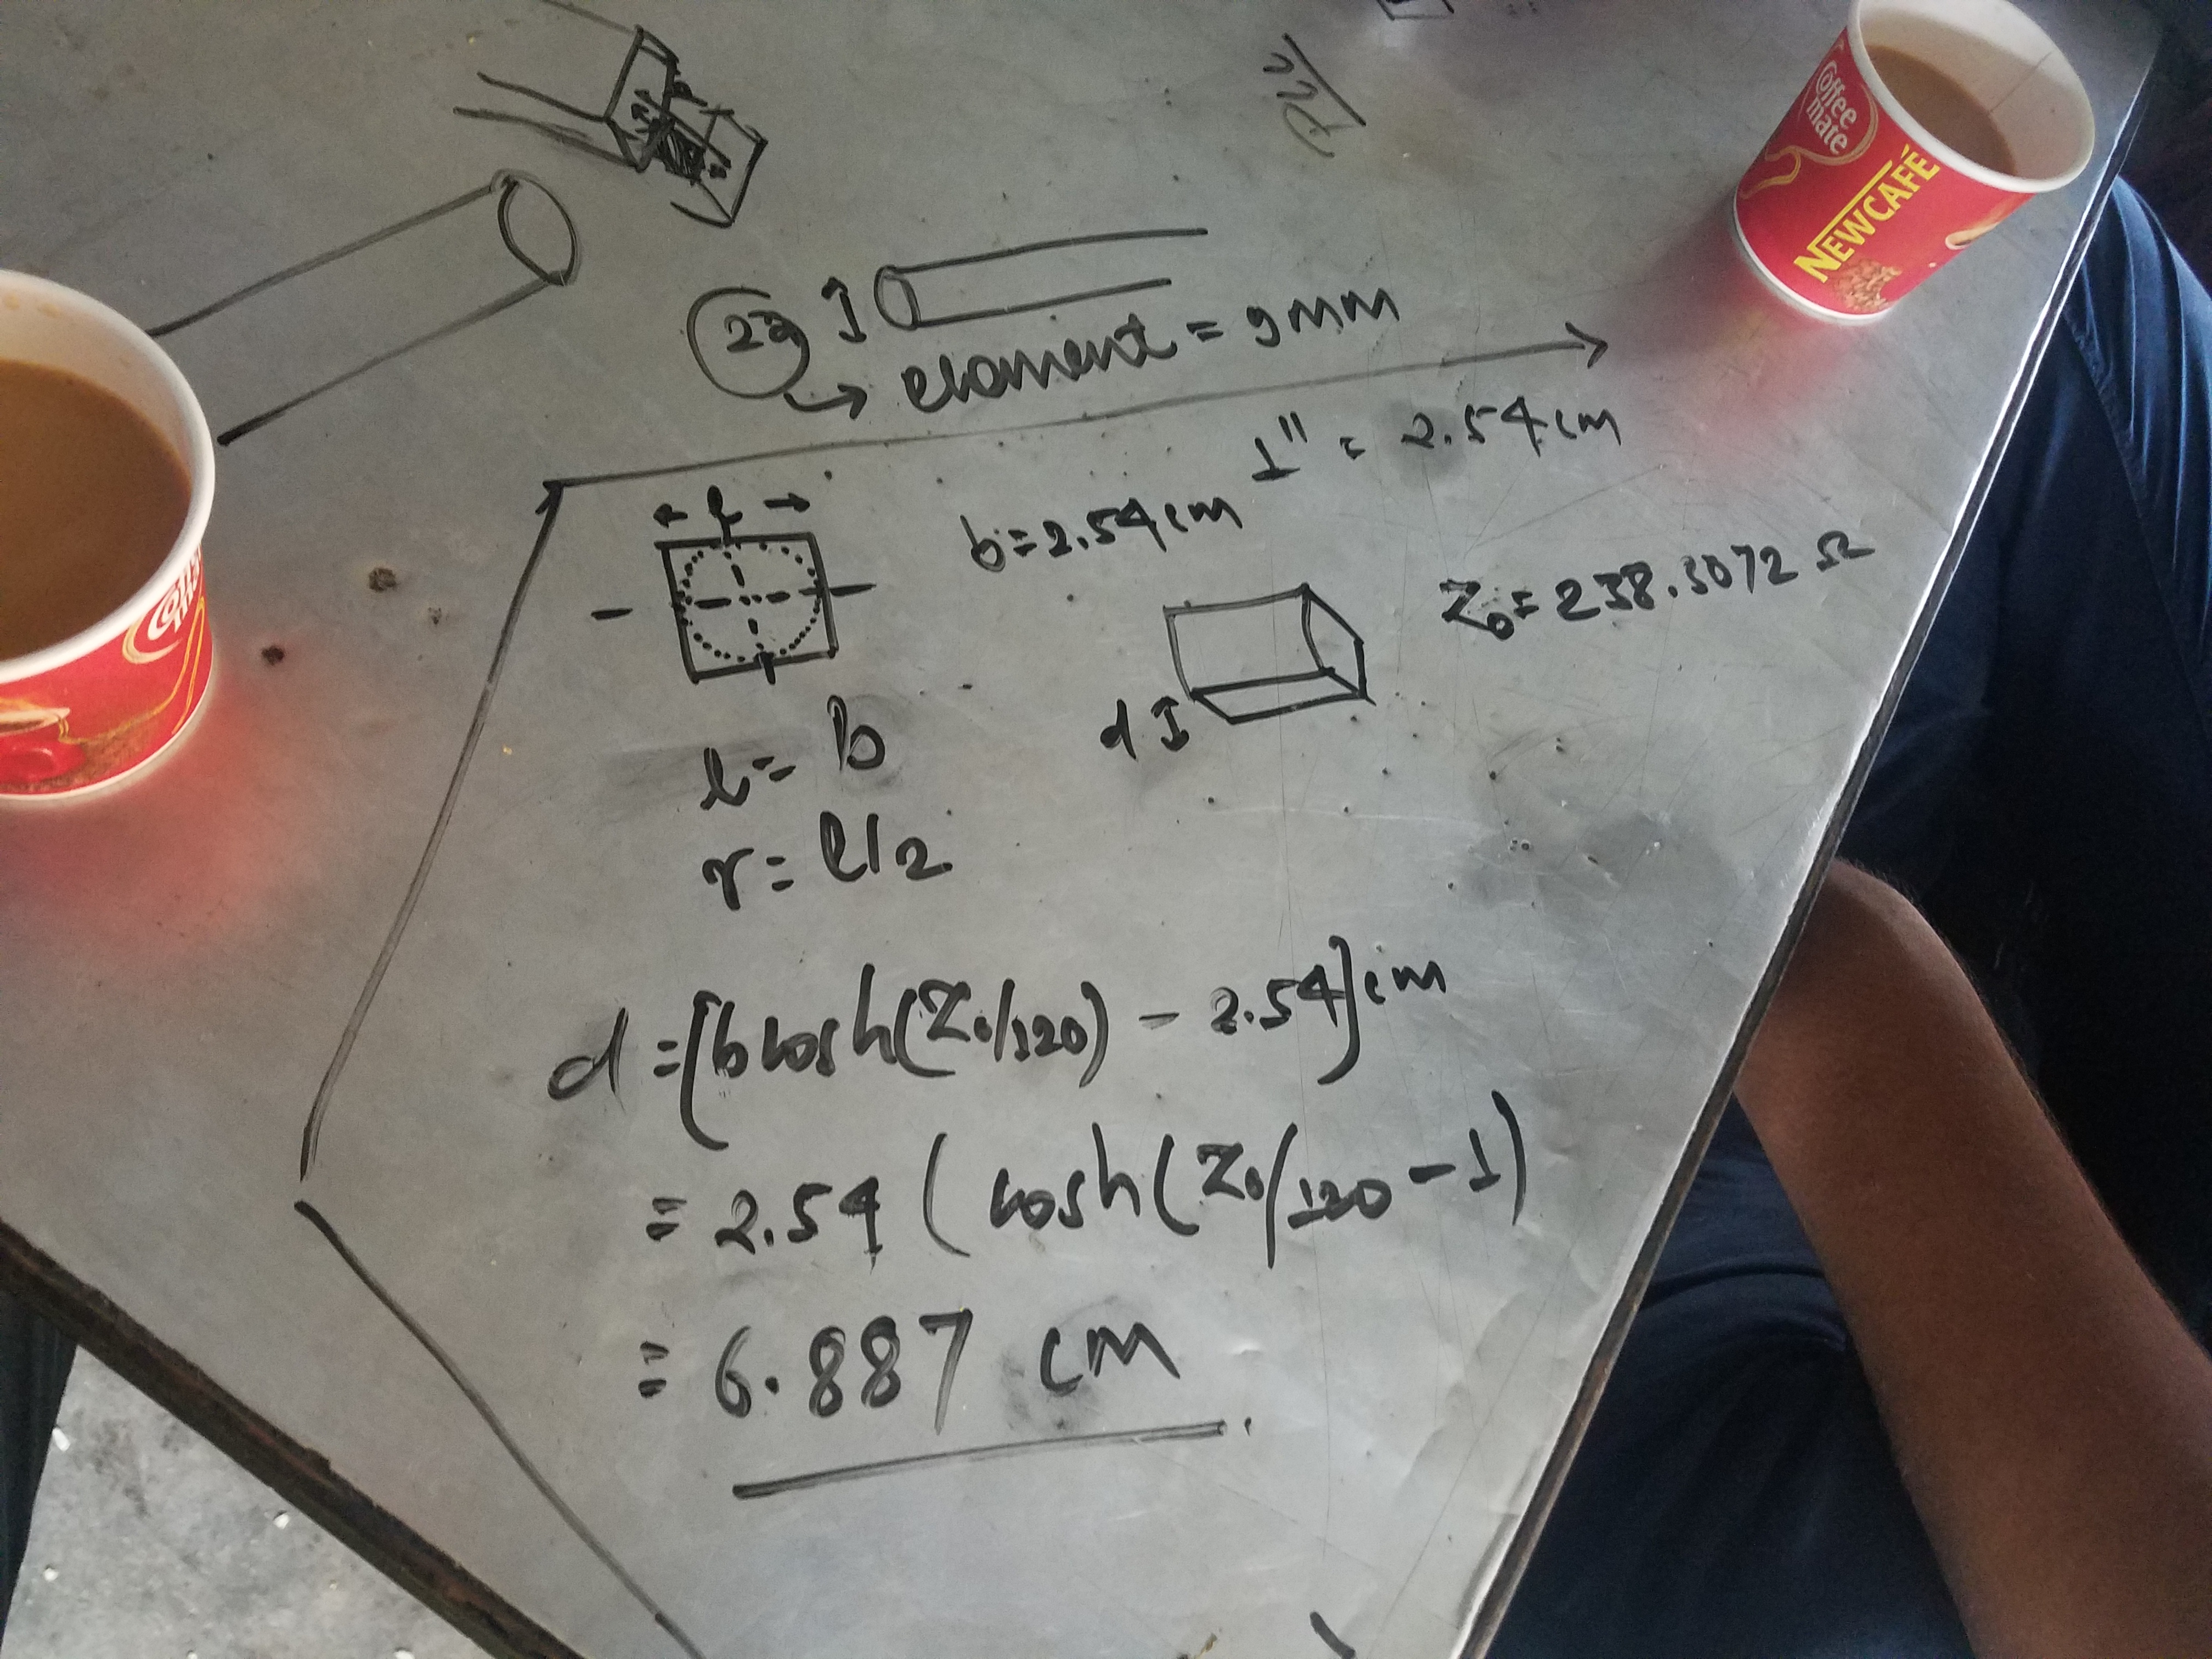 2a
element = 9mm
1" = 2.54 cm
b=2.54 cm
l
Z₀ = 238.5072 Ω
l = b
d
r = l/2
d = (b cosh(Z₀/120) - 2.54) cm
= 2.54 (cosh(Z₀/120 - 1)
= 6.887 cm
Coffee
mate
NEWCAFÉ